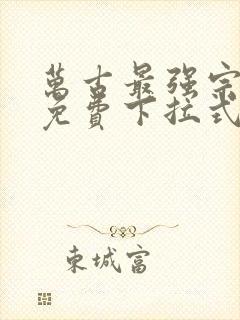 萬古最强宗
免費下拉式
東城富